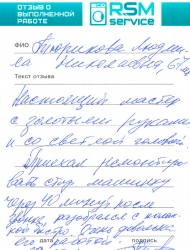 ОТЗЫВ О
ВЫПОЛНЕННОЙ
РАБОТЕ
RSM
service
ФИО Тихрикова Людми-
ла Николаевна, 67 лет
Текст отзыва
Настоящий мастер
с золотыми руками
и со светлой головой.
Приехал ремонтиро-
вать стир. машинку
через 40 минут после
звонка, разобрался с
Очень довольна
его работой.
дата подпись